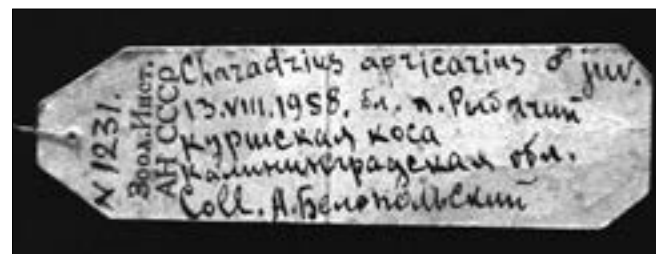 N 1231.
Зоол.Инст.
АН СССР
Charadrius apricarius ♂ juv.
13.VIII.1958. бл. п. Рыбачий
куршская коса
калининградская обл.
Coll. А.Белопольский